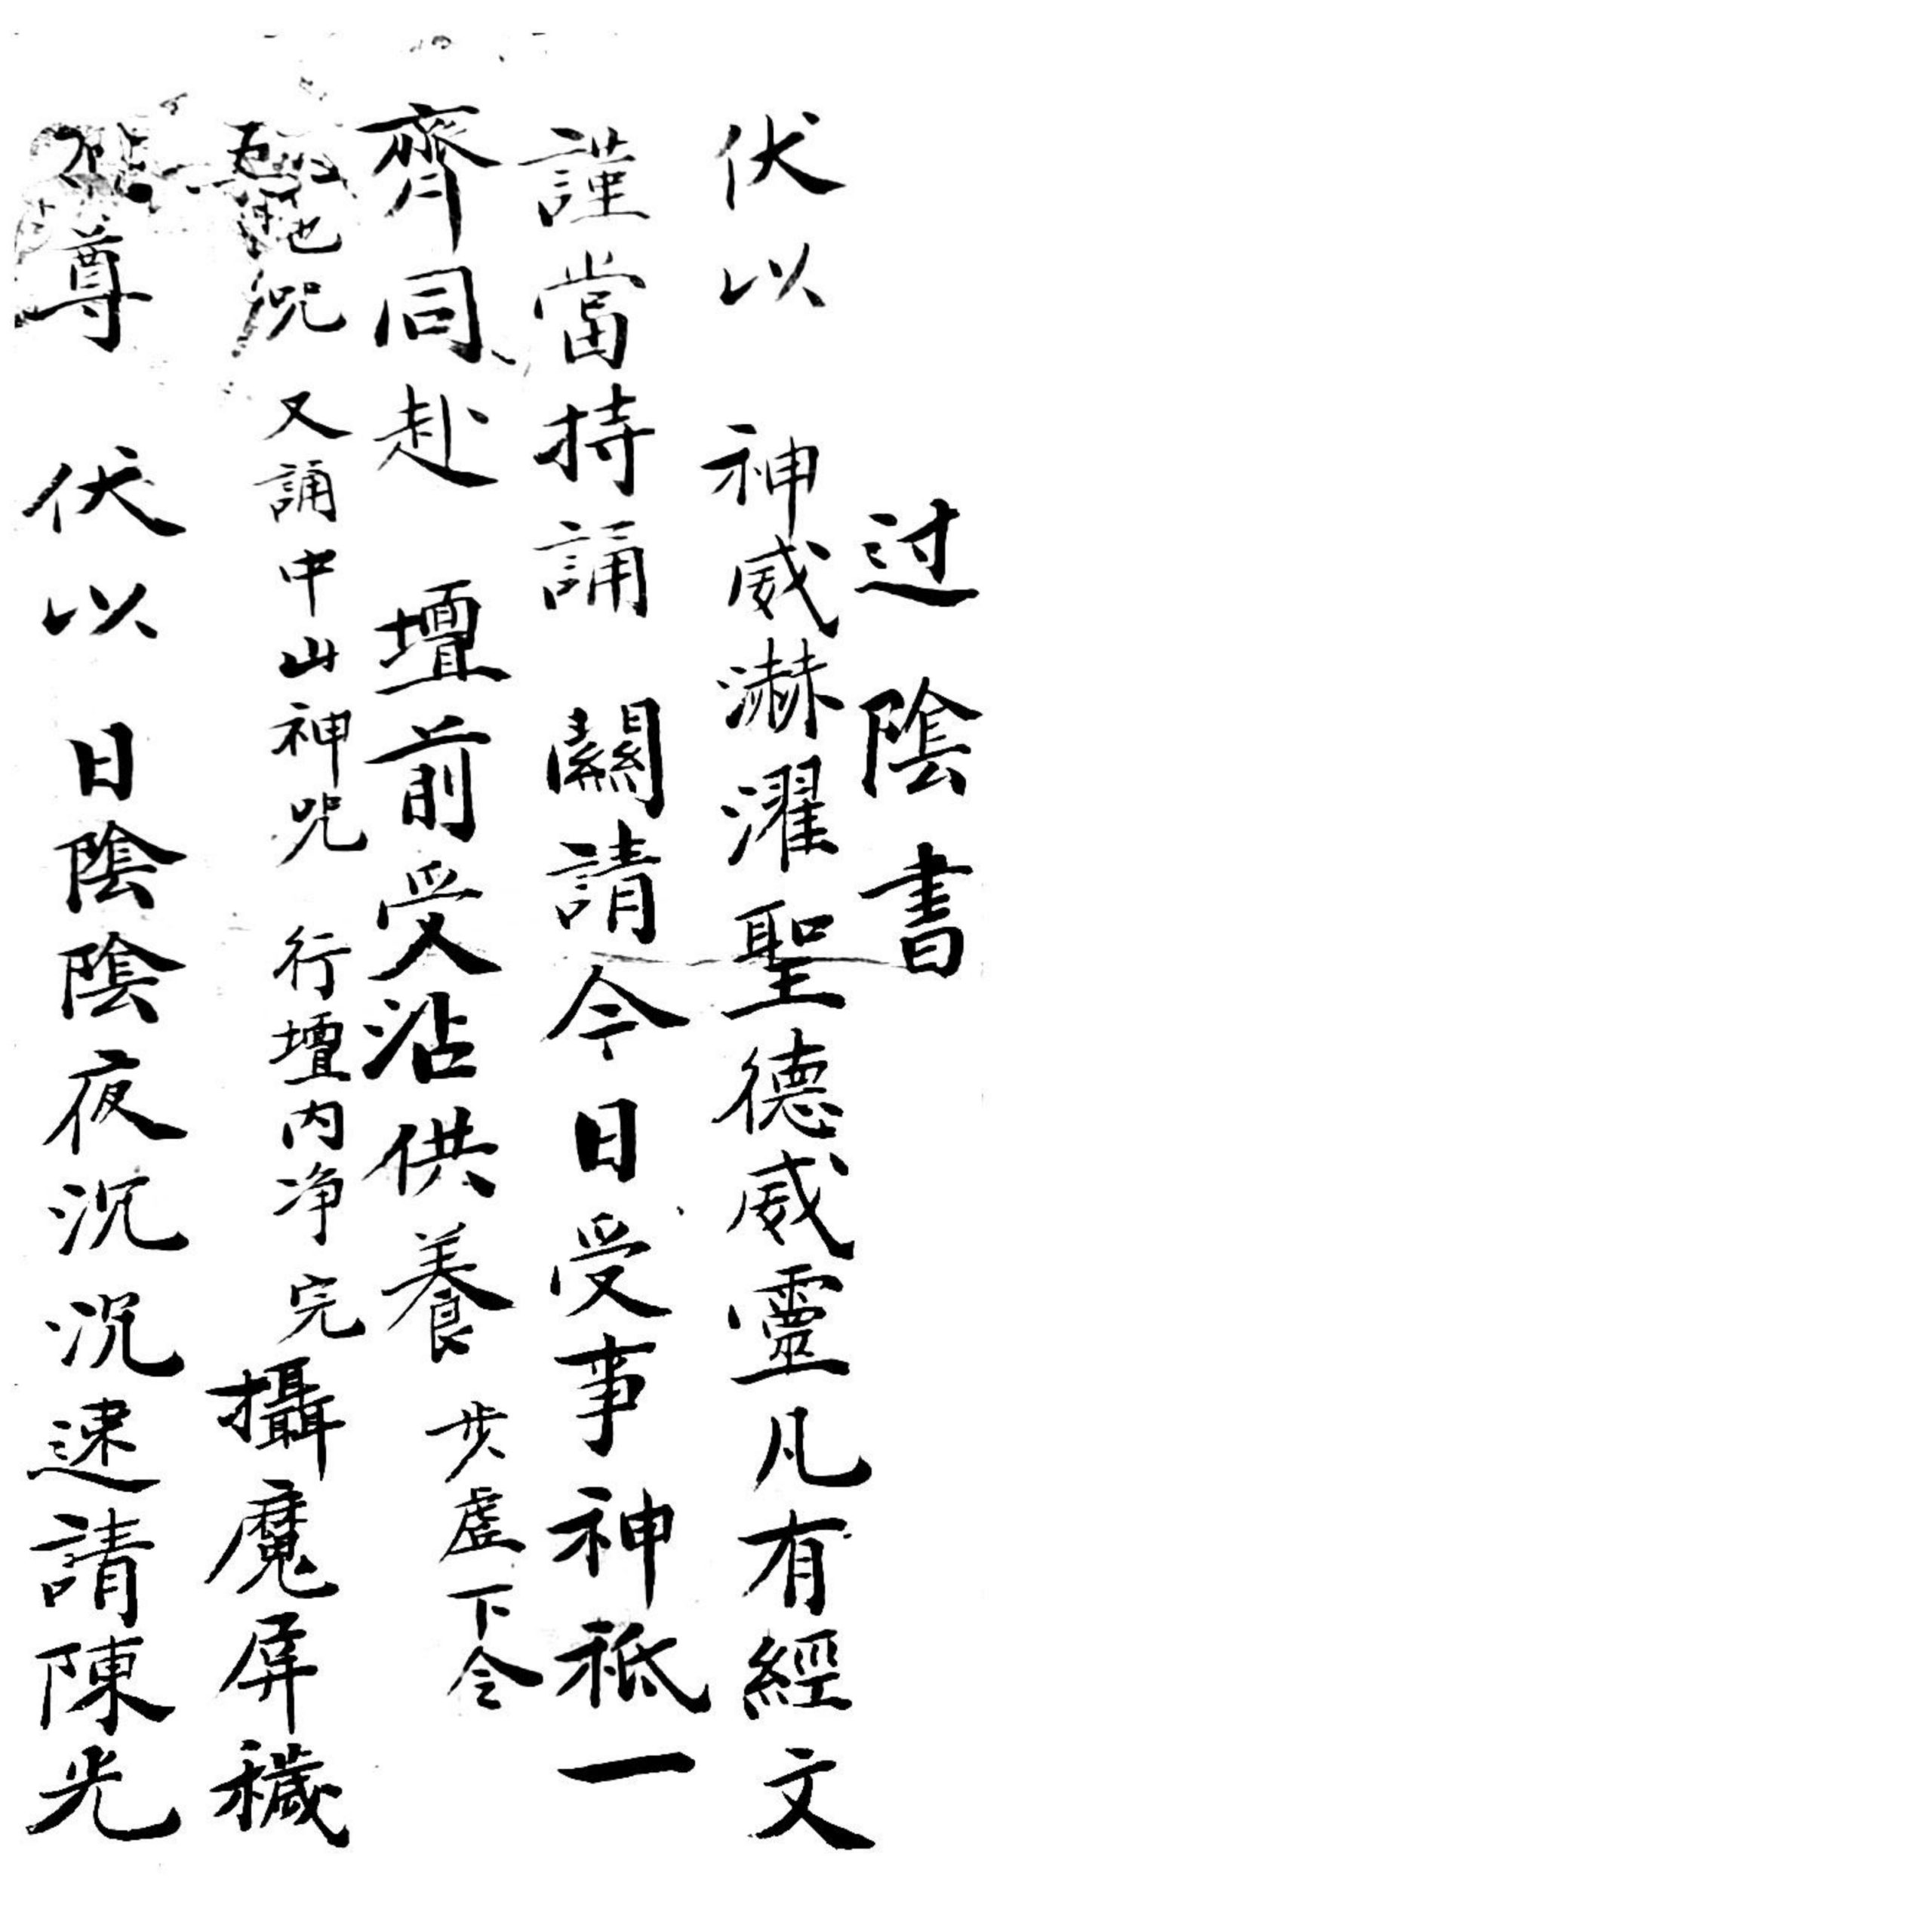 过陰書
伏以 神威濊濯聖德威靈凡有經文
謹當持誦 關請今日受事神祗一
齊同赴 壇前受沾供養 步虛下令
咒 又誦中山神咒 行壇内净完 攝魔屏穢
尊 伏以 日陰陰夜沉沉速請陳光